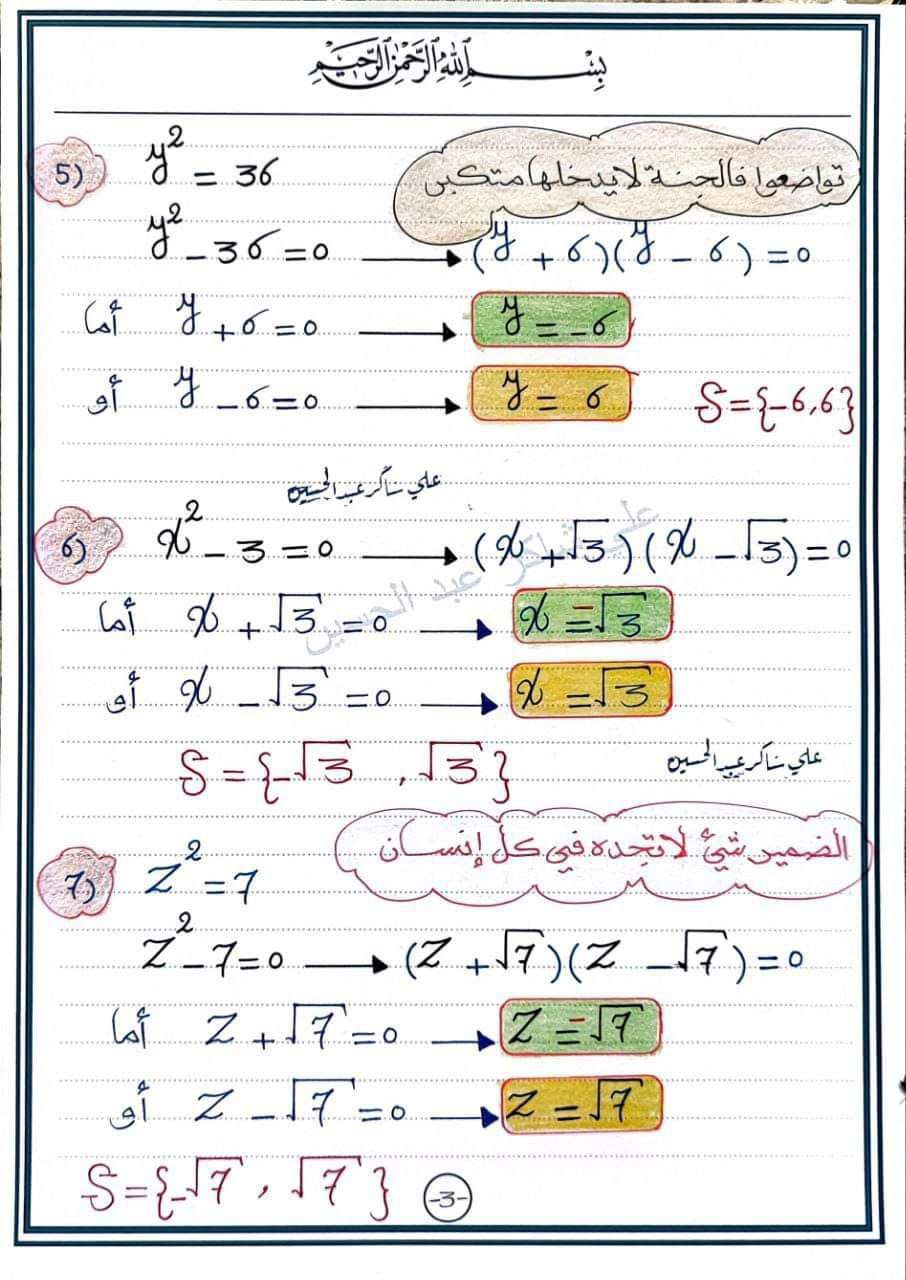 بسم الله الرحمن الرحيم
5) y² = 36
تواضعوا فالجنة لا يدخلها متكبر
y² - 36 = 0 → (y + 6)(y - 6) = 0
أما y + 6 = 0 → y = -6
أو y - 6 = 0 → y = 6 S = {-6, 6}
علي شاكر عبد الحسين
6) x² - 3 = 0 → (x + √3)(x - √3) = 0
علي شاكر عبد الحسين
أما x + √3 = 0 → x = -√3
أو x - √3 = 0 → x = √3
S = {-√3, √3} علي شاكر عبد الحسين
الضمير شيء لا تجده في كل إنسان
7) z² = 7
z² - 7 = 0 → (z + √7)(z - √7) = 0
أما z + √7 = 0 → z = -√7
أو z - √7 = 0 → z = √7
S = {-√7, √7}
-3-